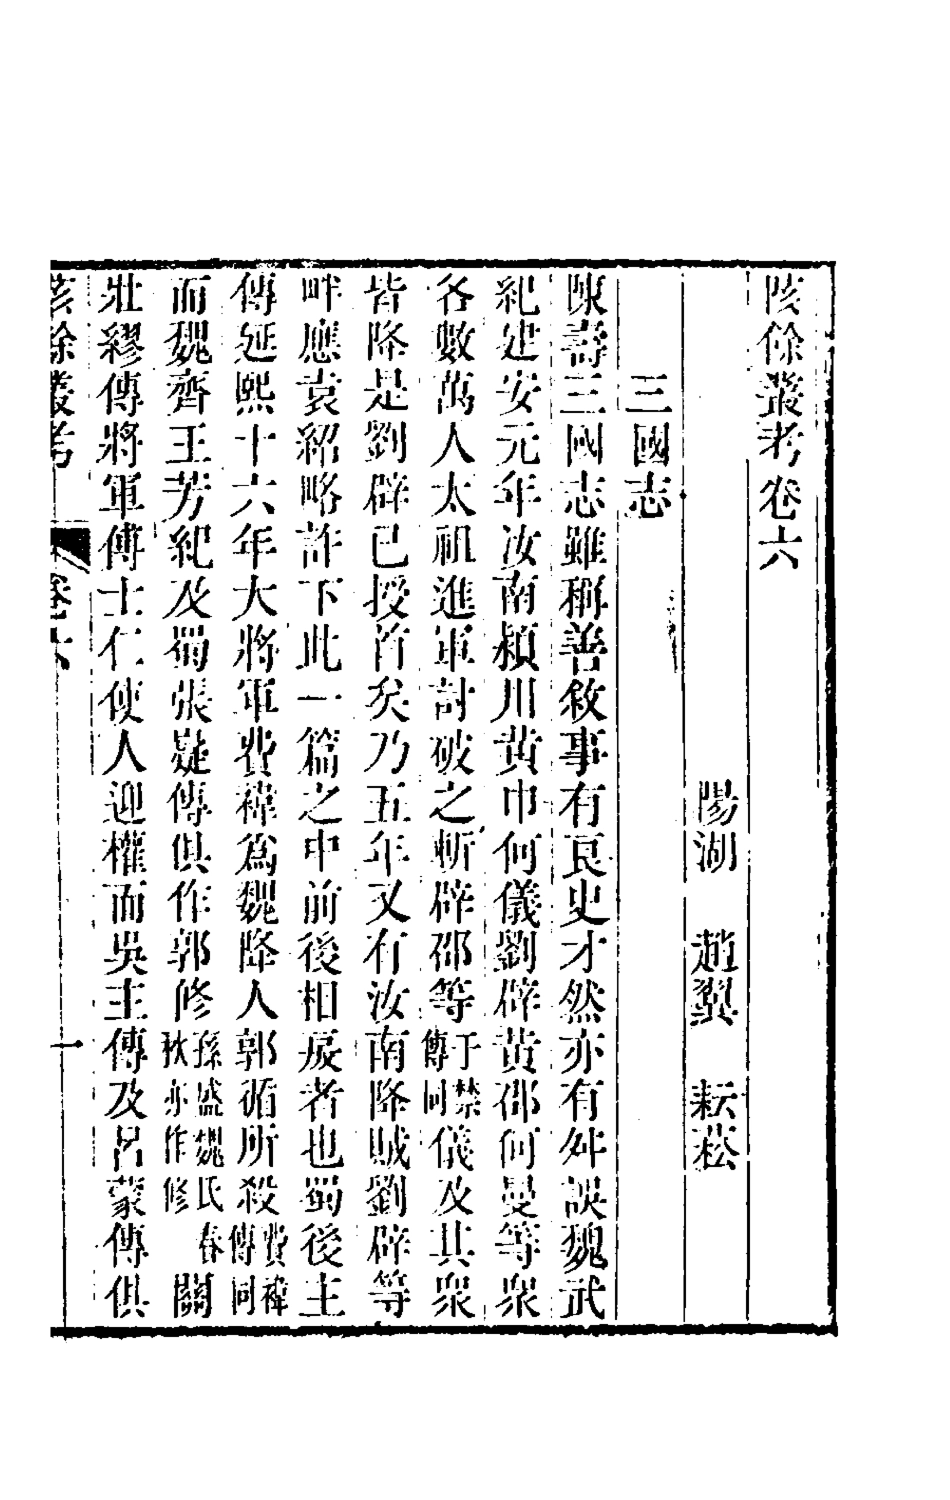 陔餘叢考卷六
陽湖　趙翼　耘菘
三國志
陳壽三國志雖稱善敘事有良史才然亦有舛誤魏武
紀建安元年汝南潁川黃巾何儀劉辟黃邵何曼等眾
各數萬人太祖進軍討破之斬辟邵等于禁傳同儀及其眾
皆降是劉辟已授首矣乃五年又有汝南降賊劉辟等
畔應袁紹略許下此一篇之中前後相戾者也蜀後主
傳延熙十六年大將軍費禕爲魏降人郭循所殺費禕傳同
而魏齊王芳紀及蜀張嶷傳俱作郭修孫盛魏氏春秋亦作修關
壯繆傳將軍傅士仁使人迎權而吳主傳及呂蒙傳俱
陔餘叢考　卷六　一